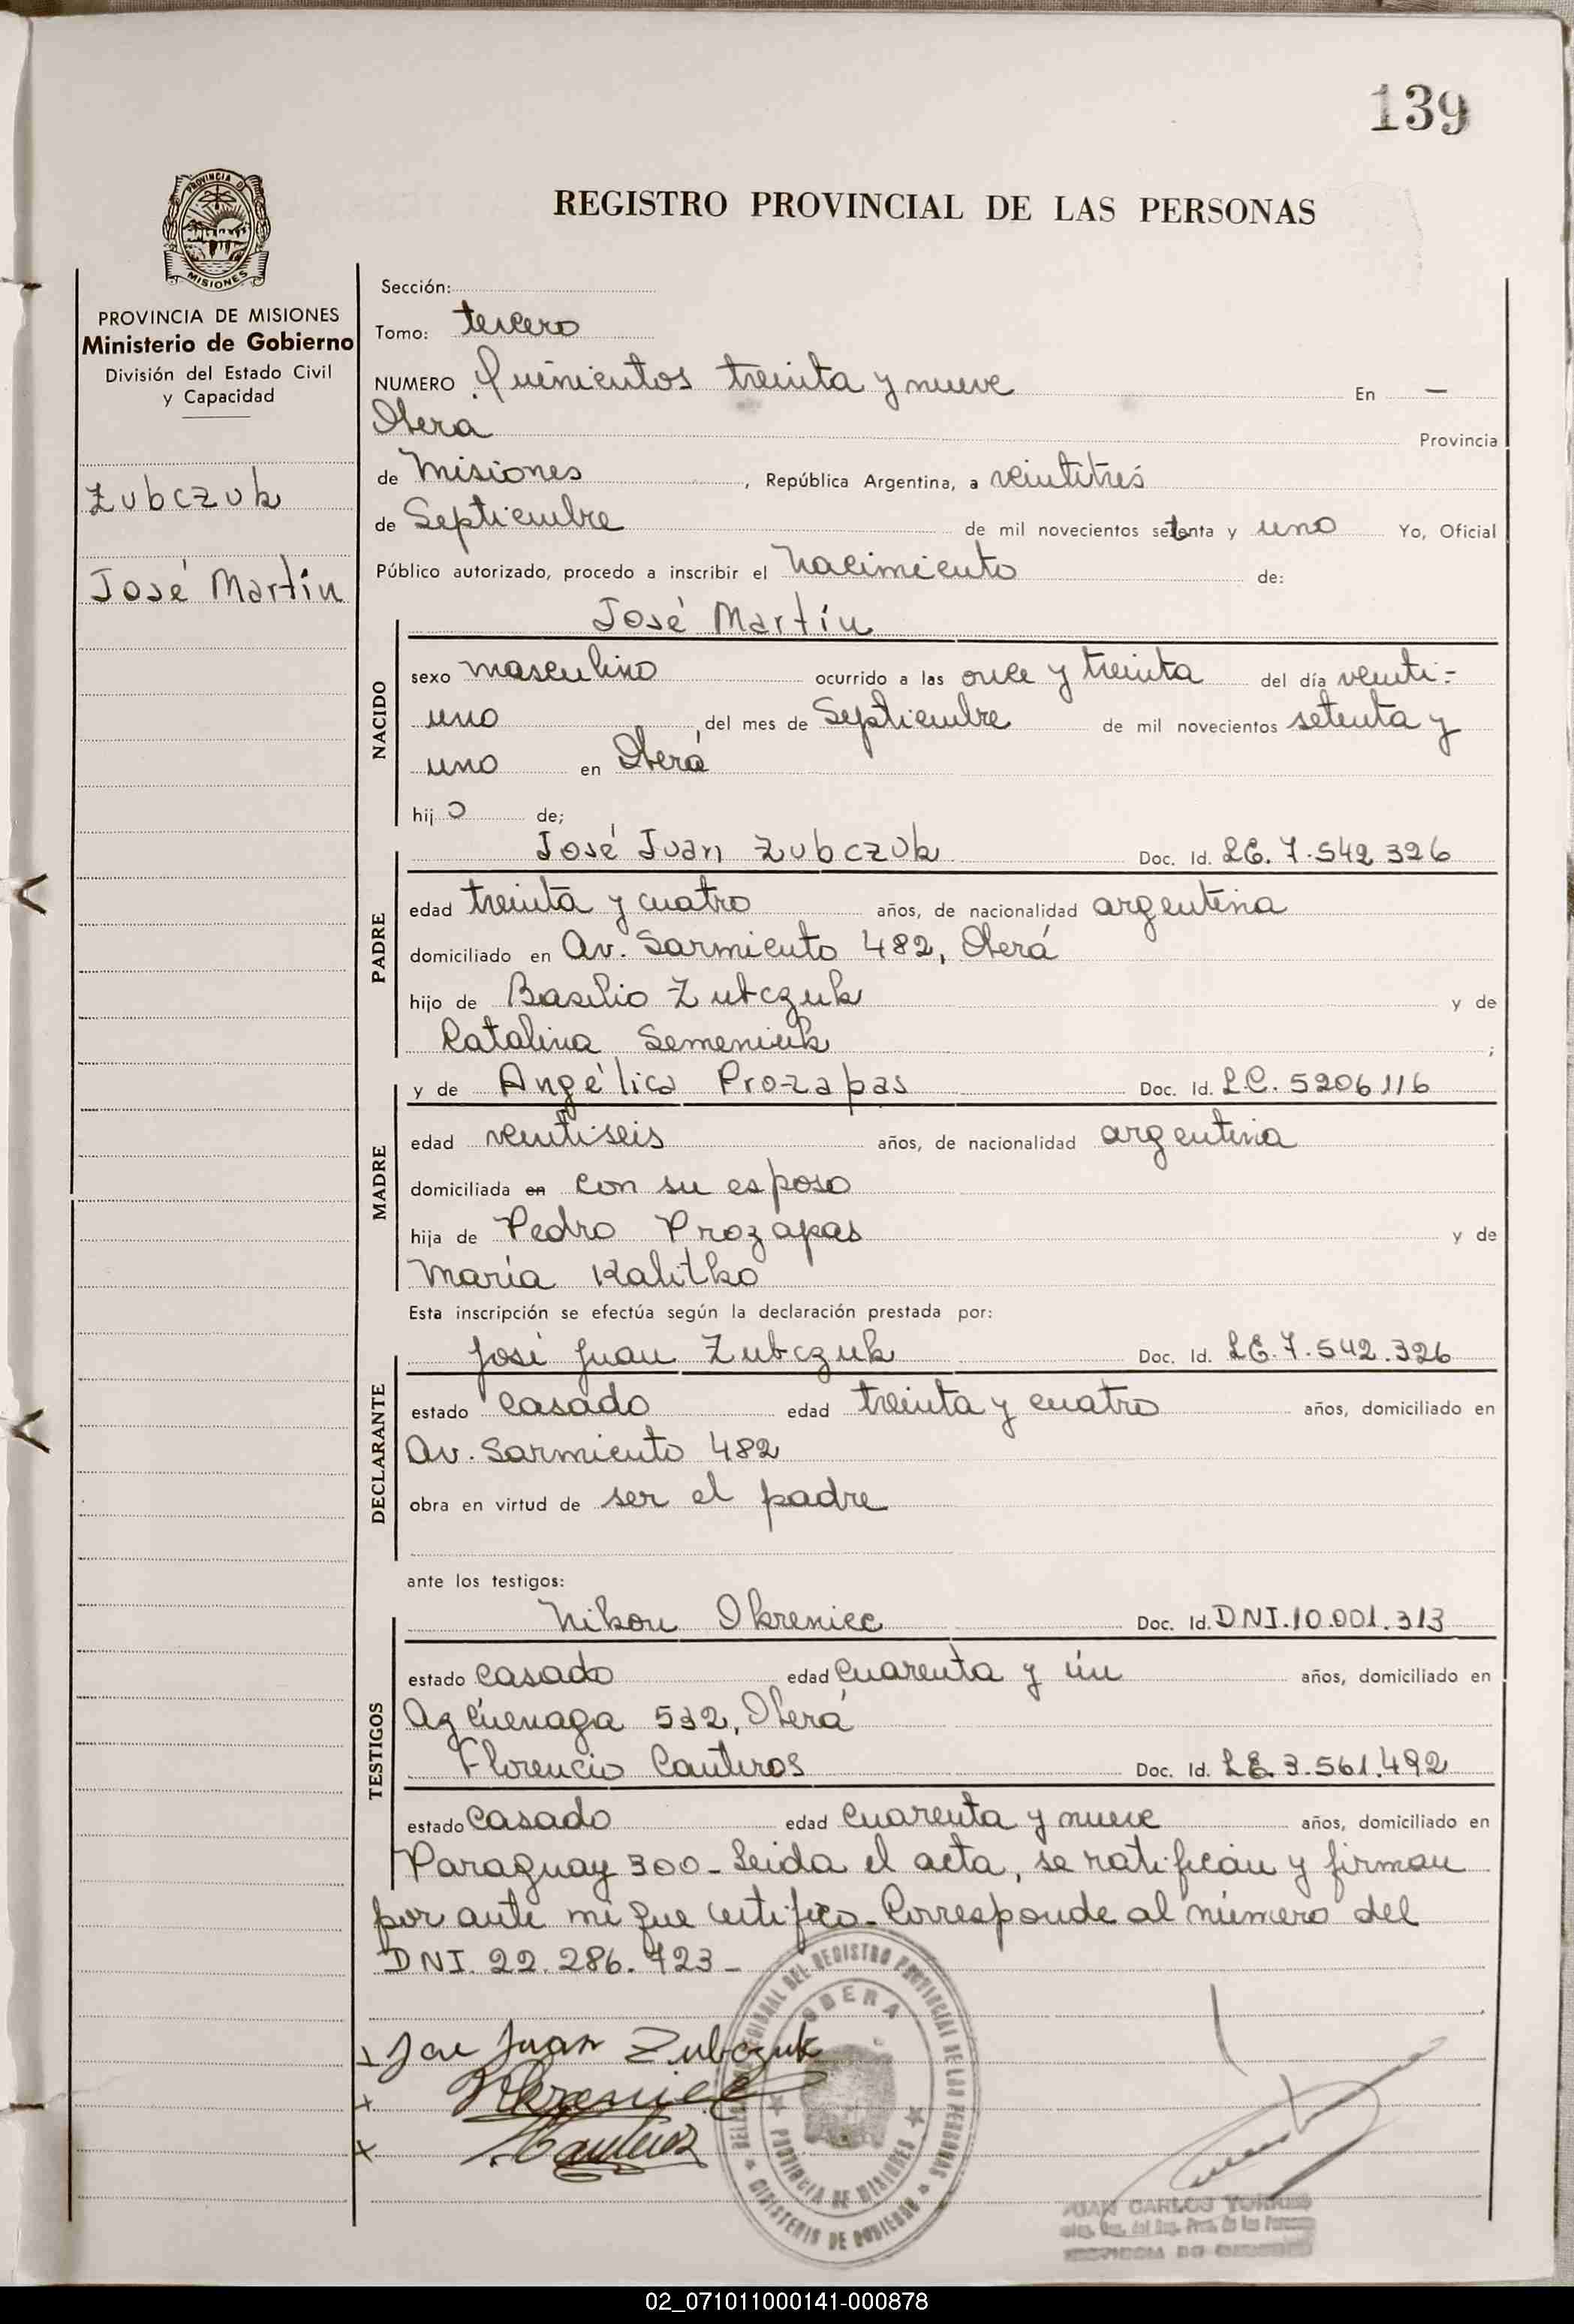 139
REGISTRO PROVINCIAL DE LAS PERSONAS
PROVINCIA DE MISIONES
PROVINCIA DE MISIONES
Ministerio de Gobierno
División del Estado Civil
y Capacidad
Zubczuk
José Martín
Sección:
Tomo: tercero
NUMERO Quinientos treinta y nueve En —
Oberá Provincia
de Misiones, República Argentina, a veintitrés
de Septiembre de mil novecientos setenta y uno Yo, Oficial
Público autorizado, procedo a inscribir el nacimiento de:
José Martín
NACIDO
sexo masculino ocurrido a las once y treinta del día veinti-
uno del mes de Septiembre de mil novecientos setenta y
uno en Oberá
hijo de;
José Juan Zubczuk Doc. Id. LE. 7.542.326
PADRE
edad treinta y cuatro años, de nacionalidad argentina
domiciliado en Av. Sarmiento 482, Oberá
hijo de Basilio Zubczuk y de
Catalina Semeniuk ;
y de Angélica Prozapas Doc. Id. LC. 5206116
MADRE
edad veintiseis años, de nacionalidad argentina
domiciliada en con su esposo
hija de Pedro Prozapas y de
María Kalitko
Esta inscripción se efectúa según la declaración prestada por:
José Juan Zubczuk Doc. Id. LE. 7.542.326
DECLARANTE
estado casado edad treinta y cuatro años, domiciliado en
Av. Sarmiento 482
obra en virtud de ser el padre
ante los testigos:
Nikon Okreniec Doc. Id. DNI.10.001.313
TESTIGOS
estado casado edad cuarenta y ún años, domiciliado en
Azcúenaga 532, Oberá
Florencio Canteros Doc. Id. LE. 3.561.492
estado casado edad cuarenta y nueve años, domiciliado en
Paraguay 300 - Leida el acta, se ratifican y firman
por ante mi que certifico - Corresponde al número del
DNI. 22.286.723 -
Jose Juan Zubczuk
Okreniec
Canteros
DEL REGISTRO PROVINCIAL DE LAS PERSONAS
OBERA
PROVINCIA DE MISIONES
MINISTERIO DE GOBIERNO
JUAN CARLOS TORRES
02_071011000141-000878